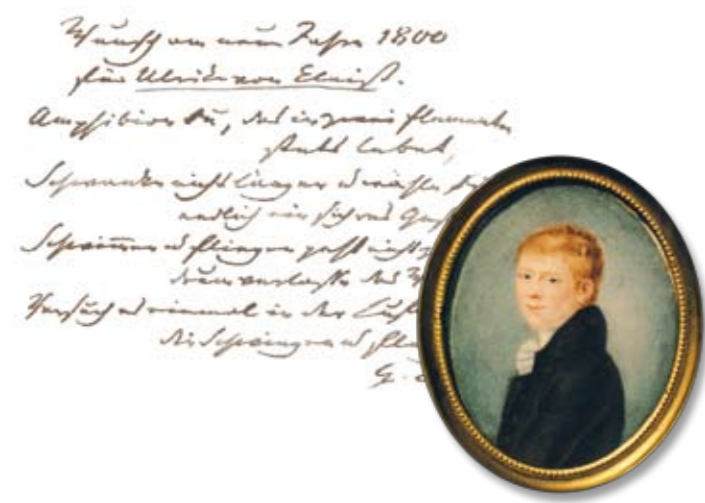 Wunsch am neuen Jahre 1800
für Ulrike von Kleist.
Amphibion Du, das in zwei Elementen
stets lebet,
Schwanke nicht länger u wähle
endlich ein sichres
Schwimmen u fliegen geht nicht
drum verlasse das
Versuch es einmal in der
die Schwingen u